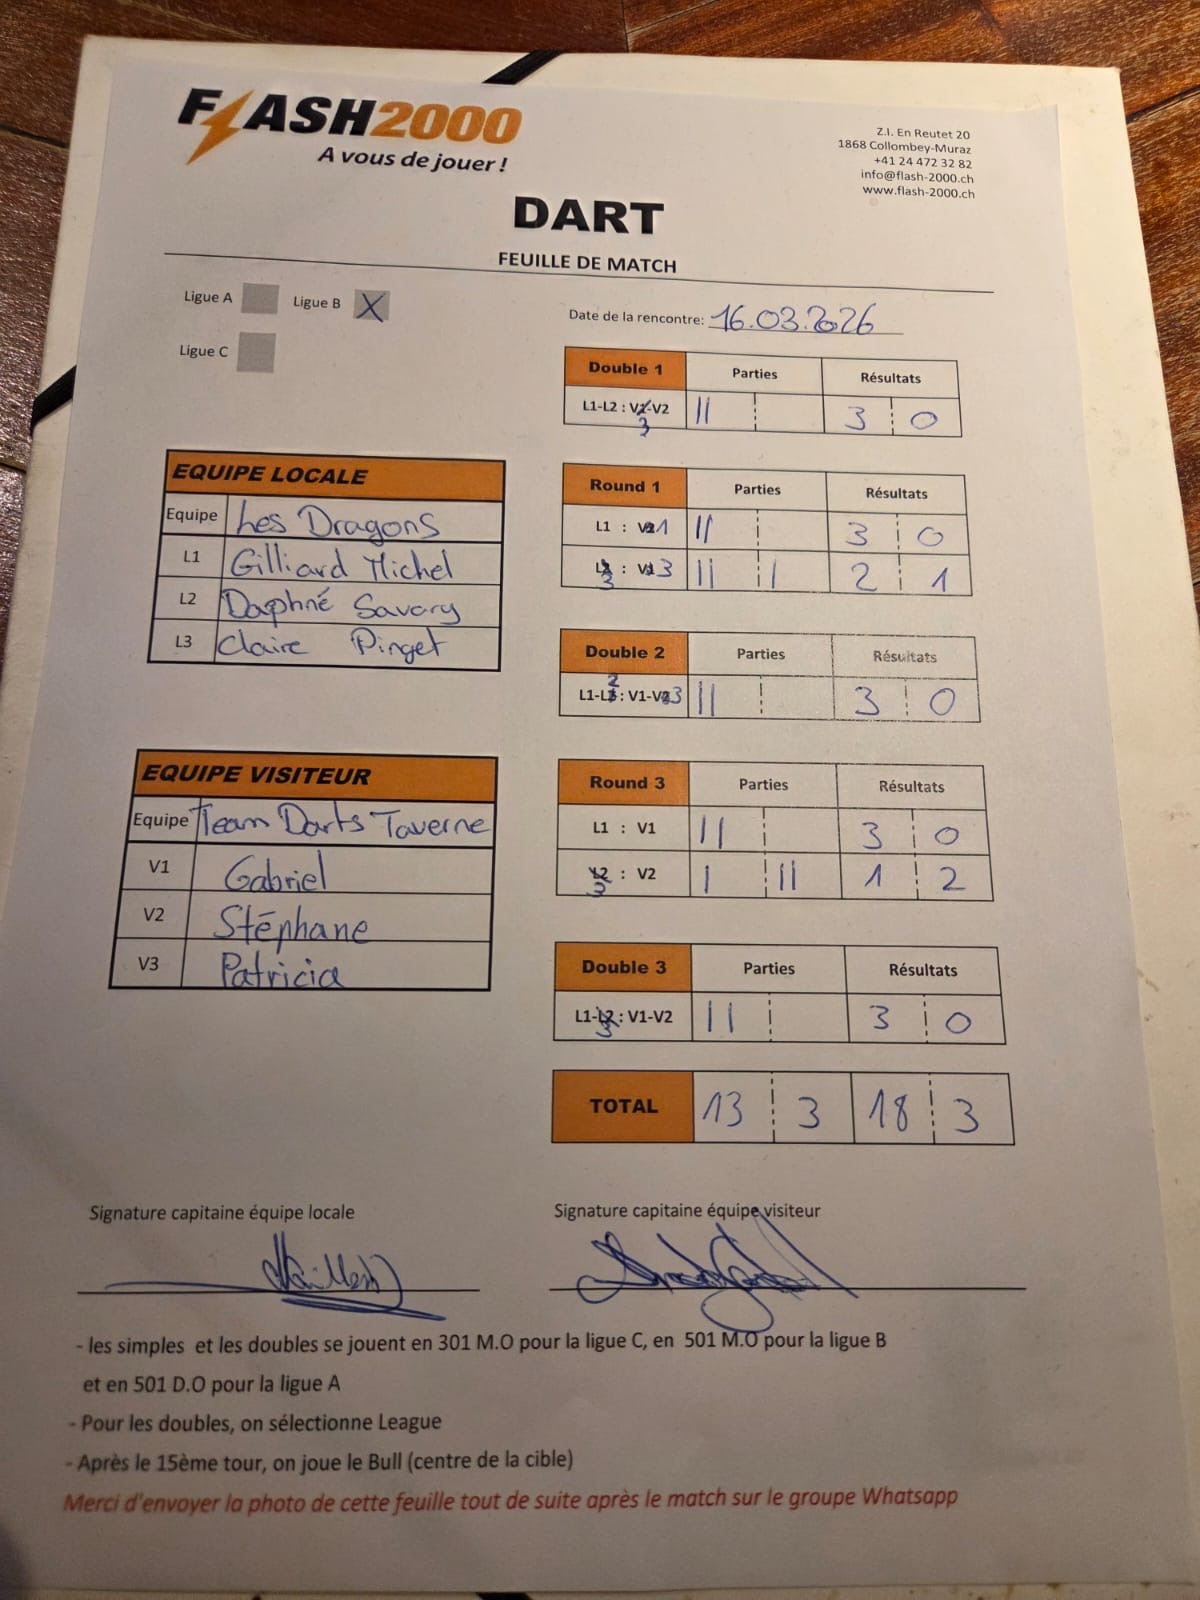 FLASH2000
A vous de jouer !
Z.I. En Reutet 20
1868 Collombey-Muraz
+41 24 472 32 82
info@flash-2000.ch
www.flash-2000.ch
DART
FEUILLE DE MATCH
Ligue A Ligue B X
Ligue C
Date de la rencontre: 16.03.2026
Double 1 Parties Résultats
L1-L2 : V1-V2 || 3 0
3
EQUIPE LOCALE
Equipe Les Dragons
L1 Gilliard Michel
L2 Daphné Savary
L3 Claire Pinget
Round 1 Parties Résultats
L1 : V1 || 3 0
3 : V3 || | 2 1
Double 2 Parties Résultats
L1-L2 : V1-V3 || 3 0
EQUIPE VISITEUR
Equipe Team Darts Taverne
V1 Gabriel
V2 Stéphane
V3 Patricia
Round 3 Parties Résultats
L1 : V1 || 3 0
L2 : V2 | || 1 2
3
Double 3 Parties Résultats
L1-L2 : V1-V2 || 3 0
3
TOTAL 13 3 18 3
Signature capitaine équipe locale
Signature capitaine équipe visiteur
- les simples et les doubles se jouent en 301 M.O pour la ligue C, en 501 M.O pour la ligue B
et en 501 D.O pour la ligue A
- Pour les doubles, on sélectionne League
- Après le 15ème tour, on joue le Bull (centre de la cible)
Merci d'envoyer la photo de cette feuille tout de suite après le match sur le groupe Whatsapp